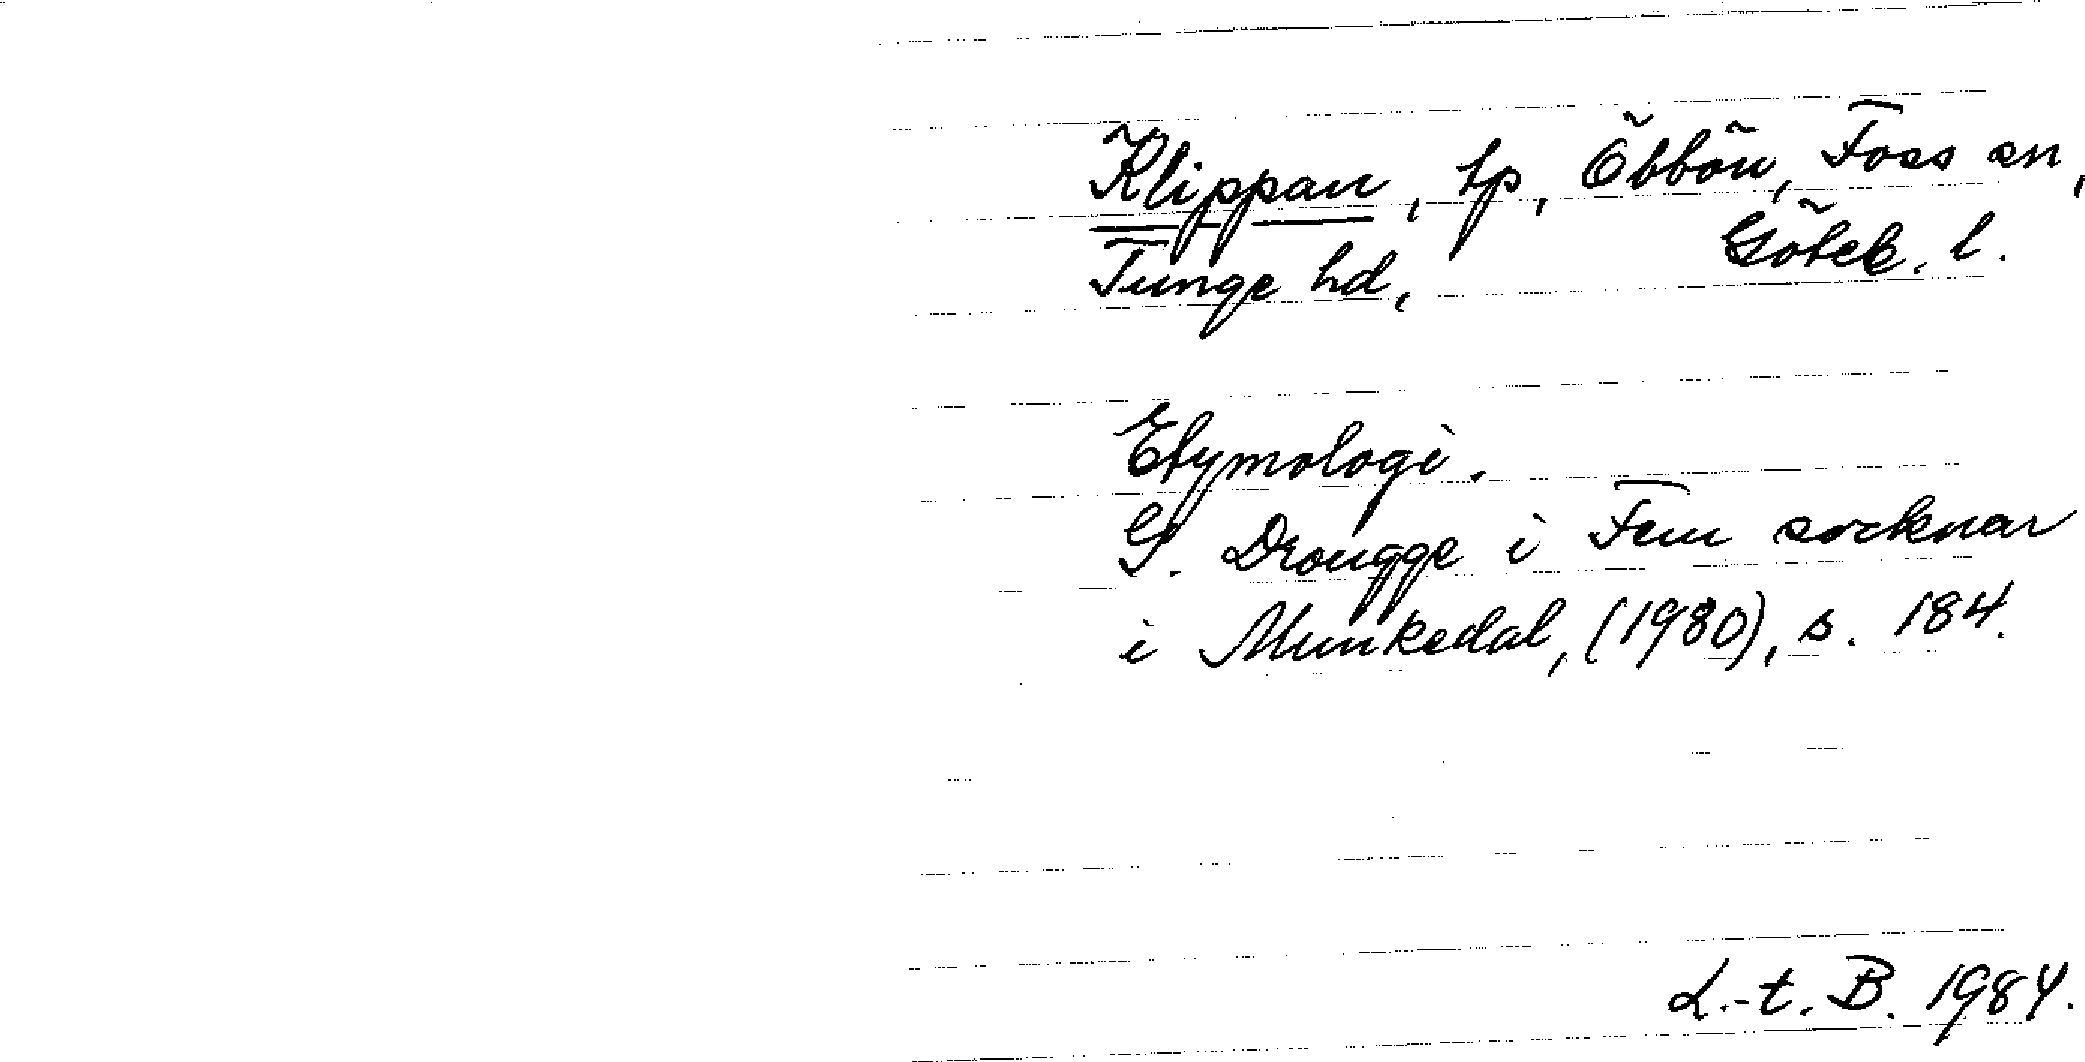 Klippan, tp, Öbbön, Foss sn,
Tunge hd, Göteb. l.
Etymologi.
G. Drougge i Fem socknar
i Munkedal, (1980), s. 184.
L.-t. B. 1984.